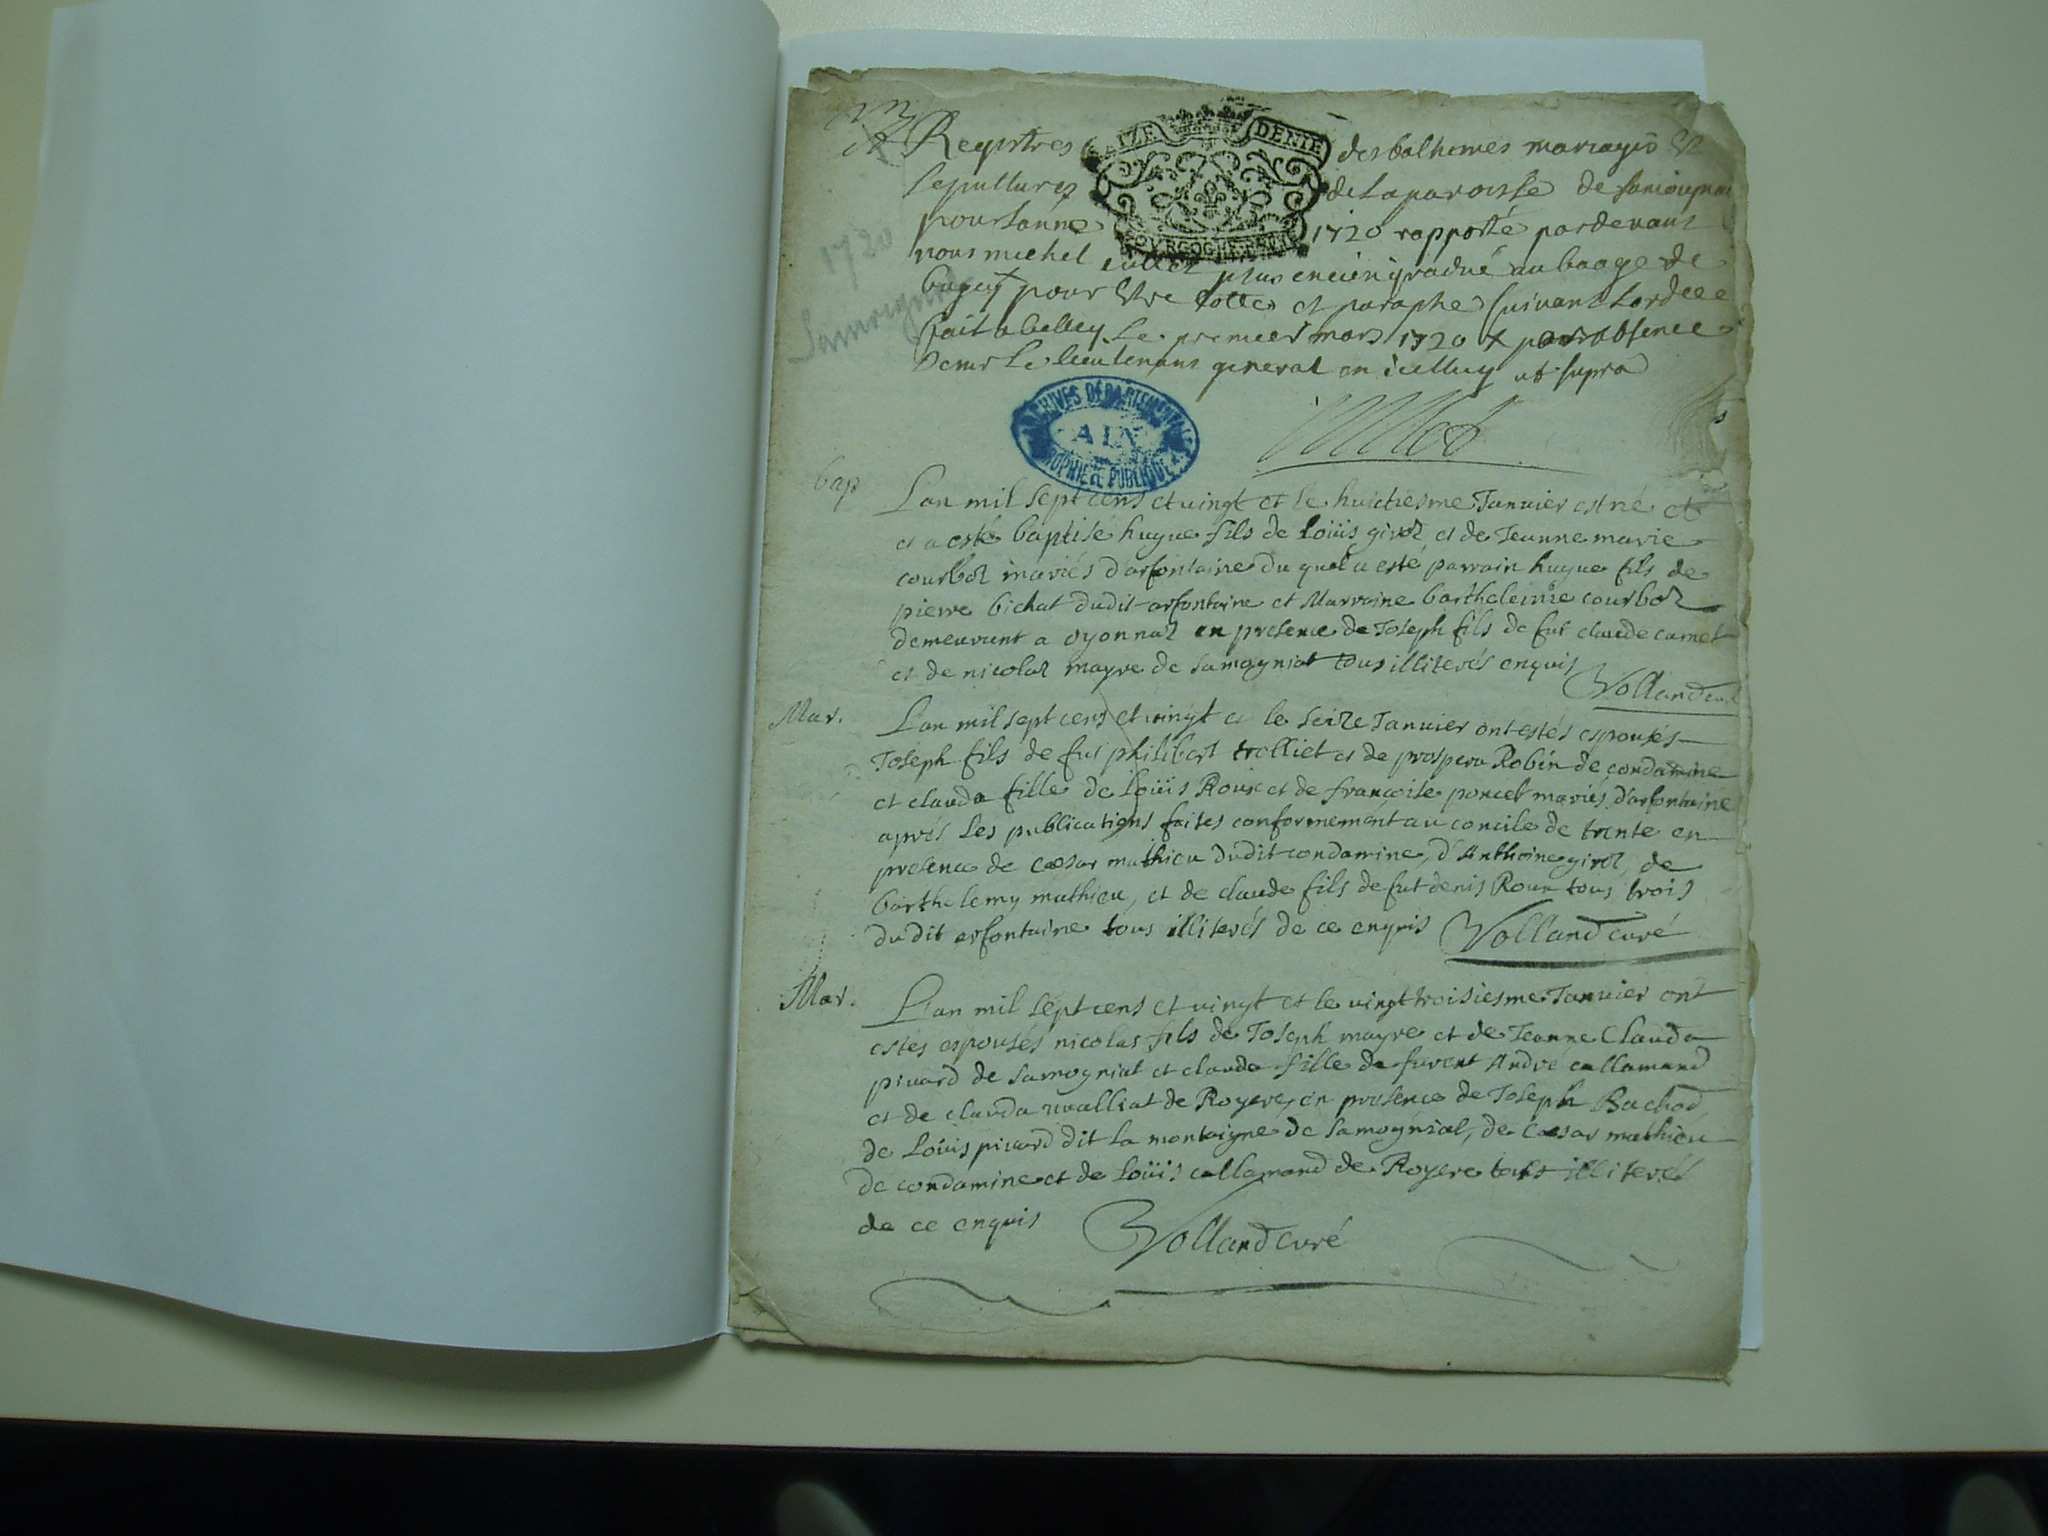 Registres des bathemes mariages et
sepultures de la paroisse de
pour lanne 1720 rapporté pardevant
nous michel plus encien gradué au baage de
bugey x pour estre cotter et paraphe suivant lordre
fait a belley Le premier mars 1720 x par absence
de mr Le lieutenant general en icelluy ut supra
SEIZE DENIE
BOURGOGNE
1720
ARCHIVES DÉPARTEMENTALES
AIN
PROPRIÉTÉ PUBLIQUE
bap
Lan mil sept cens et vingt et le huictiesme Janvier est né et
et a esté baptisé hugue fils de Loüis girod et de Jeanne marie
courboz mariés d'arfontaine du quel a esté parrain hugue fils de
pierre bichat dudit arfontaine et Marraine barthelemie courboz
demeurant a oyonnaz en presence de Joseph fils de fut claude carnet
et de nicolaz mayre de samogniat tous illiterés enquis
Volland curé
Mar.
Lan mil sept cens et vingt et le seize Janvier ont estés espousés
Joseph fils de fut philibert trolliet et de prospera Robin de condamine
et clauda fille de loüis Roux et de françoise poncet mariés d'arfontaine
aprés les publications faites conformement au concile de trente en
presence de cæsar mathieu dudit condamine, d'Anthoine girod, de
barthelemy mathieu, et de claude fils de fut denis Roux tous trois
dudit arfontaine tous illiterés de ce enquis Volland curé
Mar.
L'an mil sept cens et vingt et le vingt troisiesme Janvier ont
estés espousés nicolas fils de Joseph mayre et de Jeanne Clauda
picard de samogniat et clauda fille de furent André callamand
et de clauda de Royere, en presence de Joseph Bachod
de Loüis picard dit la montaigne de samogniat, de cæsar mathieu
de condamine et de Loüis callamand de Royere tous illiterés
de ce enquis Volland curé